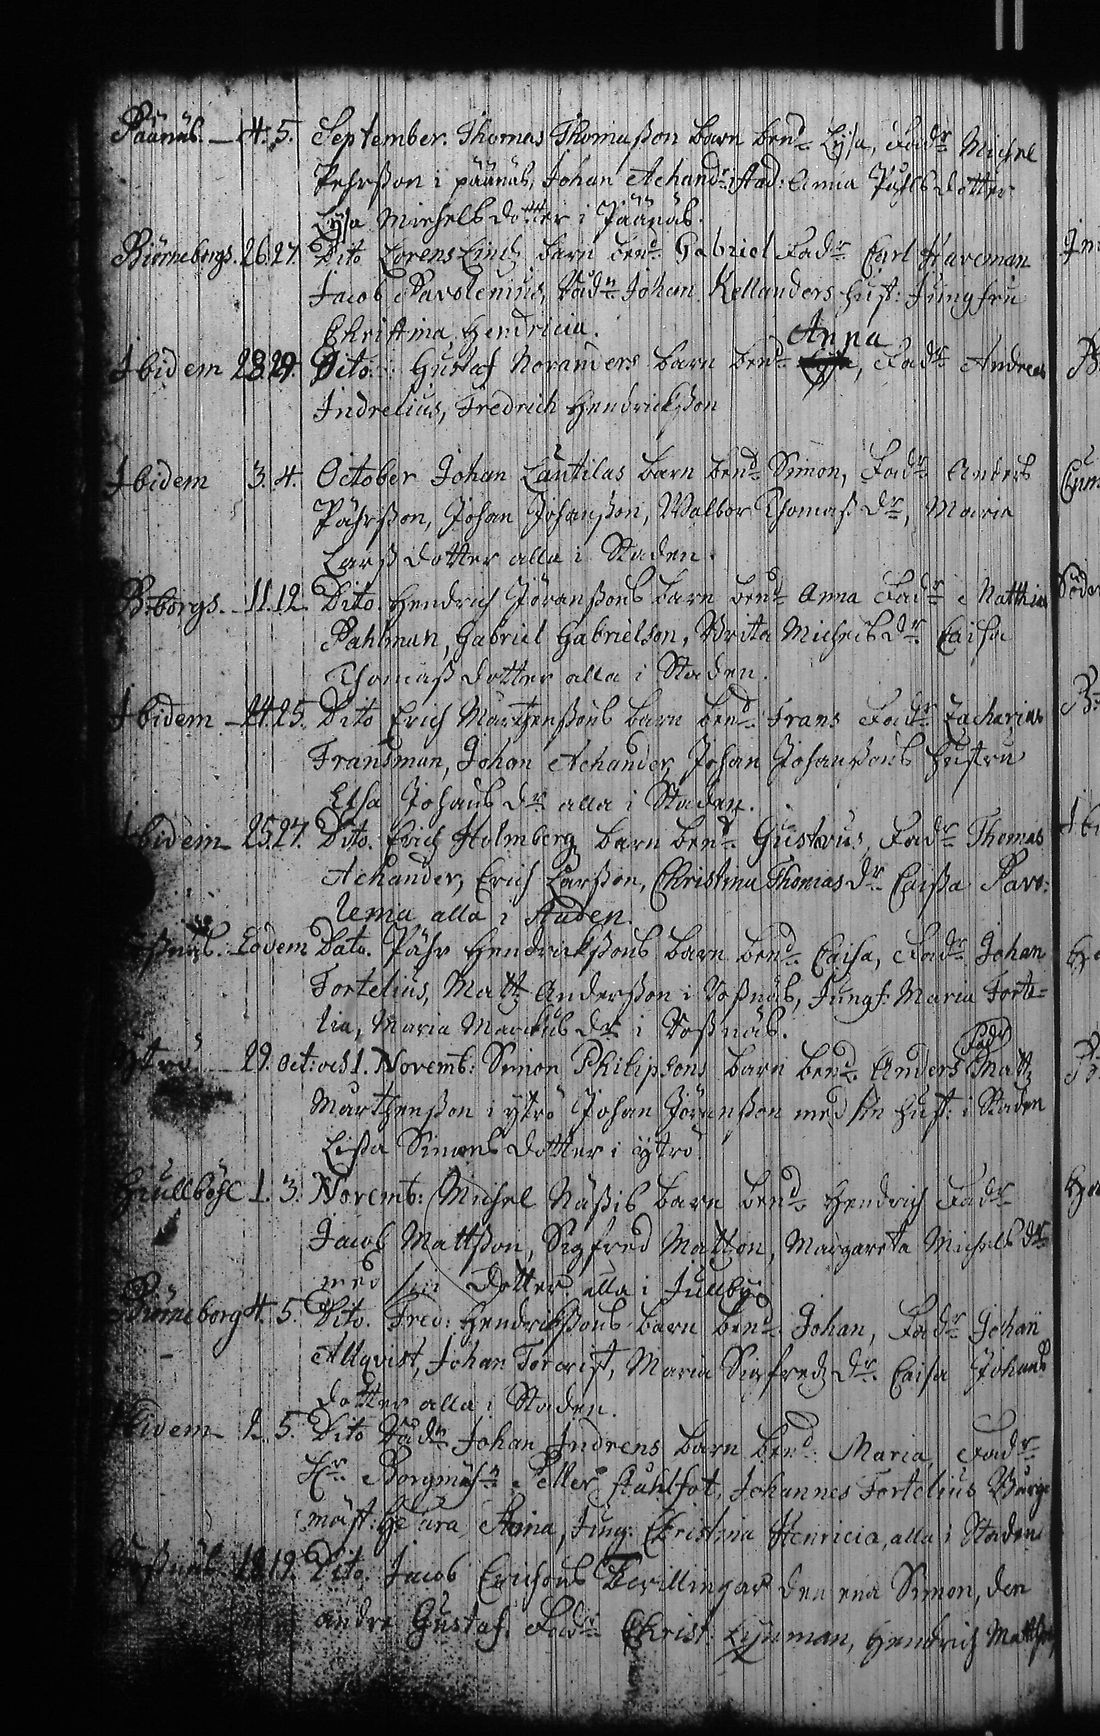 Päänäs. 4. 5. September. Thomas Thomasson barn bend Lysa, Fadr Michel
Pehrsson i päänäs, Johan Achandr i stad: Anna Påhls dotter
Lysa Michels dotter i Päänäs.
Biörneborgs. 26. 27. Dito Lorens Linds barn bend Gabriel Fadr Carl Hareman
Jacob Pavolenius, Rådm Johan Kellanders hust: Jungfru
Christina, Hendricia.
Anna
Ibidem 28. 29. Dito: Gustaf Noranders barn bend Lysa, Fadr Andreas
Indrelius, Fredrich Hendricksson
Ibidem 3. 4. October Johan Lautilas barn bend Simon, Fadr Anders
Påhrsson, Johan Johansson, Walbor Thomass dr, Maria
Larss dotter alla i Staden.
B:borgs. 11. 12. Dito. Hendrich Jöranssons barn bend Anna Fadr Matthias
Pahlman, Gabriel Gabrielson, Brita Michels dr Caisa
Thomass dotter alla i Staden.
Ibidem 24. 25. Dito Erich Mårtenssons barn bend Frans Fadr Zacharias
Frandsman, Johan Achander, Johan Johanssons hustru
Elsa Johans dr alla i Staden.
Ibidem 25. 27. Dito. Erich Holmberg barn bend Gustavus, Fadr Thomas
Achander, Erich Larsson, Christina Thomas dr Caissa Pavo:
lema alla i staden.
Eodem Dato. Påhr Hendrichssons barn bend Caisa, Fadr Johan
Fortelius, Matts Andersson i Tossnäs, Jungf: Maria Forte=
lia, Maria Marckus dr i Tossnäs.
Fadr
ytrö 29. oct: och 1. Novemb: Simon Philipsons barn bend Anders Matts
Martensson i ytrö Johan Jöransson med sin hust: i Staden
Lissa Simons dotter i ytrö
Hiullböhl 1. 3. Novemb: Michel Nässis barn bend Hendrich Fadr
Jacob Mattsson, Sigfred Matson, Margareta Michels dr
med sin Dotter alla i Jullby
Biörneborg 4. 5. Dito. Fred: Hendrichssons barn bend Johan, Fadr Johan
Allqvist, Johan Forqvist, Maria Sigfreds dr Caisa Johans
dotter alla i Staden.
Ibidem 2. 5. Dito Rådm Johan Indrens barn bend Maria, Fadr
Hr Borgmäst Peller stahlfot, Johannes Fortelius Burge
mäst: Anna, Jung: Christina Henricia, alla i Staden
18. 19. Dito. Jacob Erichsons Twillingar den ena Simon, den
andre Gustaf. Fadr Christ: Lijnman, Hendrich Mattsson